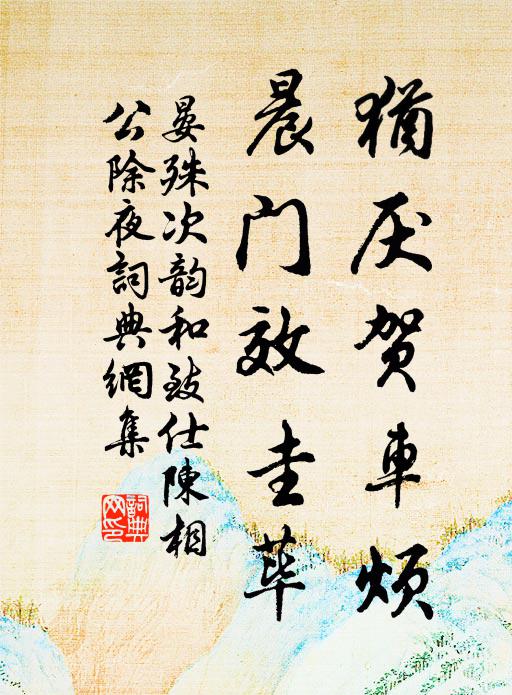 猶厌贺車煩
晨门效圭荜
晏殊次韵和致仕陳相
公除夜詞典網集
詞典网印